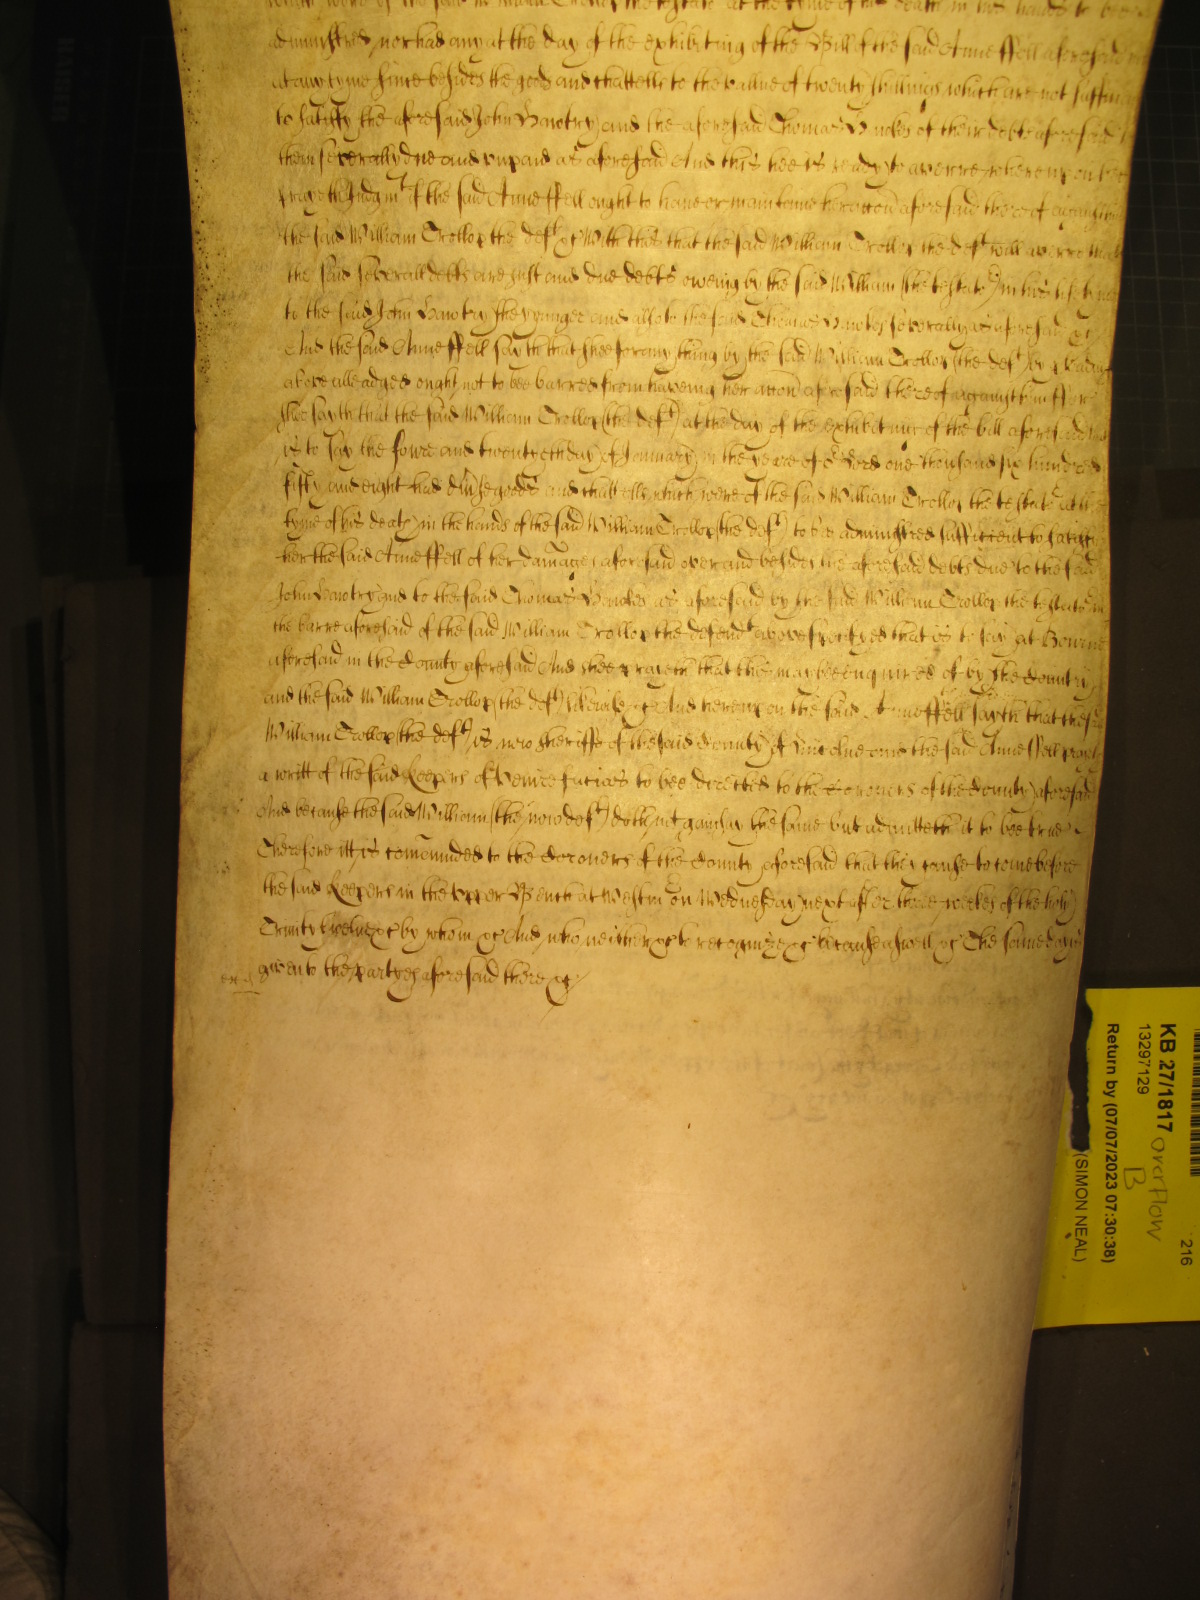 which were of the said William Trollop the testator at the tyme of his death in his hands to bee
administred nor had any at the day of the exhibiting of the Bill of the said Anne ffell aforesaid
at any tyme since besides the goods and chattells to the vallue of twenty shillings which are not
to satisfy the aforesaid John Vawtry and the aforesaid Thomas of their debts aforesaid
them severally due and unpaid as aforesaid And this hee is ready to averre whereupon hee
prayeth Judgmt if the said Anne ffell ought to have or mainteine her accon aforesaid thereof against
the said William Trollop the deft &c With this that the said William Trollop the deft will averre
the said severall debts are just and due debts oweing by the said William (the testator) in his life tyme
to the said John Vawtry the younger and also to the said Thomas severally as aforesaid &c
And the said Anne ffell sayth that shee for any thing by the said William Trollop (the deft) by pleading
above alleadged ought not to bee barred from haveing her accon aforesaid thereof against him ffor
shee sayth that the said William Trollop (the deft) at the day of the exhibiting of the bill aforesaid
is to say the fowre and twentyeth day of January in the yeare of or Lord one thousand six hundred
fifty and eight had divse goods and chattells which were of the said William Trollop the testator at the
tyme of his death in the hands of the said William Trollop (the deft) to bee administred sufficient to satisfy
her the said Anne ffell of her damages aforesaid over and besides the aforesaid debts due to the said
John Vawtry and to the said Thomas as aforesaid by the said William Trollop the testator in
the barre aforesaid of the said William Trollop the defendt above specifyed that is to say at Bourne
aforesaid in the County aforesaid And shee prayeth that this may bee enquired of by the Country
and the said William Trollop (the deft) likewise &c And hereupon the said Anne ffell sayth that the said
William Trollop (the deft) is now sheriffe of the said County of Lincolne and the said Anne ffell prayeth
a writt of the said Keepers of Venire facias to bee directed to the Coroners of the County aforesaid
And because the said William (the now deft) doth not gainsay the same but admitteth it to bee true
Therefore itt is comaunded to the Coroners of the County aforesaid that they cause to come before
the said Keepers in the upper Bench at Westm on Wednesday next after three weekes of the holy
Trinity twelve &c by whom &c And who neither &c to recognize &c because aswell &c The same day is
given to the partyes aforesaid there &c
KB 27/1817 overflow
B
13297129
Return by (07/07/2023 07:30:38)
(SIMON NEAL)
216